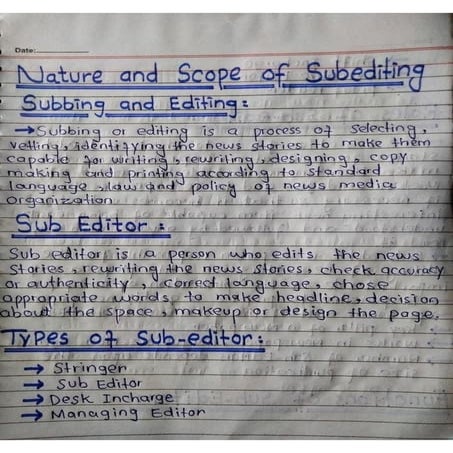 Date:
Nature and Scope of Subediting
Subbing and Editing:
→Subbing or editing is a process of selecting,
vetting, identifying the news stories to make them
capable for writing, rewriting, designing, copy
making and printing according to standard
language, law and policy of news media
organization.
Sub Editor:
Sub editor is a person who edits the news
stories, rewriting the news stories, check accuracy
or authenticity, correct language, chose
appropriate words to make headline, decision
about the space, makeup or design the page.
Types of Sub-editor:
→ Stringer
→ Sub Editor
→ Desk Incharge
→ Managing Editor